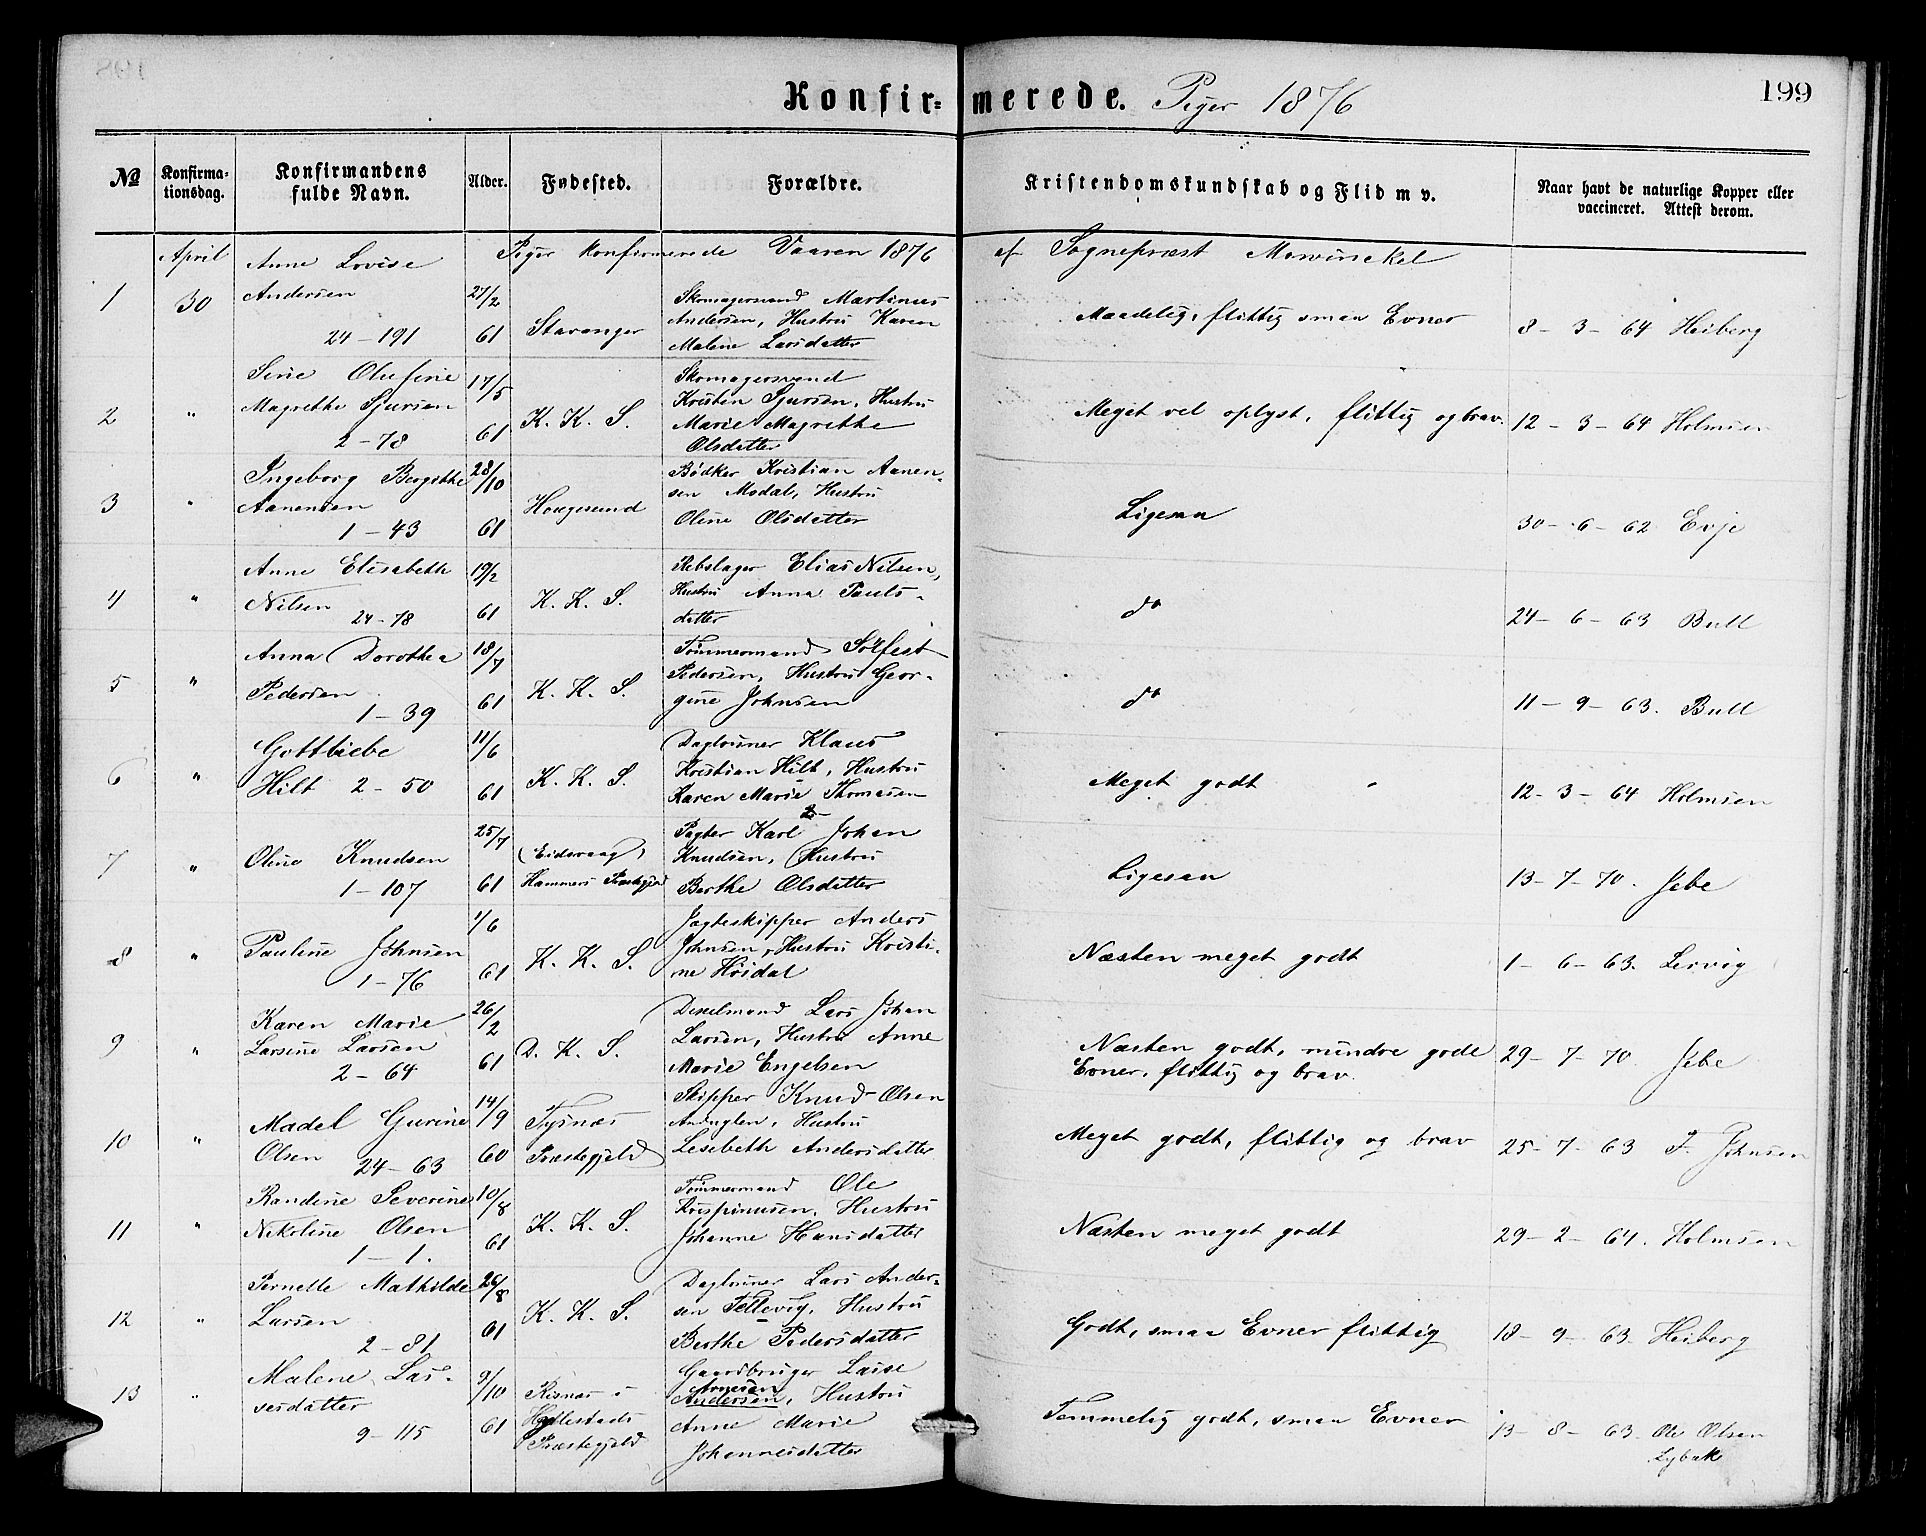 Konfirmerede. Piger 1876
199
No
Konfirmationsdag.
Konfirmandens fulde Navn.
Alder.
Fødested.
Forældre.
Kristendomskundskab og Flid m v.
Naar havt de naturlige Kopper eller vaccineret. Attest derom.
April
Piger konfirmerede Vaaren 1876 af Sognepræst Mowinckel
1
30
Anne Lovise
Andersen
24 - 191
27/2
61
Stavanger
Skomagersvend Martinus
Andersen, Hustru Karen
Malene Larsdatter
Maadelig, flittig smaa Evner
8 - 3 - 64 Heiberg
2
"
Sine Olufine
Magrethe Sjursen
2 - 78
17/5
61
K. K. S.
Skomagersvend
Kristen Sjursen, Hustru
Marie Magrethe
Olsdatter
Meget vel oplyst, flittig og brav.
12 - 3 - 64 Holmsen
3
"
Ingeborg Bergithe
Aanensen
1 - 43
28/10
61
Haugesund
Bødker Kristian Aanen-
sen Modal, Hustru
Oline Olsdatter
Ligesaa
30 - 6 - 62 Evje
4
"
Anne Elisabeth
Nilsen
24 - 78
19/2
61
K. K. S.
Rebslager Elias Nilsen,
Hustru Anna Pauls-
datter
do
24 - 6 - 63 Bull
5
"
Anna Dorothea
Pedersen
1 - 39
18/7
61
K. K. S.
Tømmermand Solfest
Pedersen, Hustru Geor-
gine Johnsen
do
11 - 9 - 63. Bull
6
"
Gottliebe
Hilt 2 - 50
11/6
61
K. K. S.
Daglønner Klaus
Kristian Hilt, Hustru
Karen Marie Thomasen
Meget godt "
12 - 3 - 64 Holmsen
7
"
Oline Knudsen
1 - 107
25/7
61
(Eidsvaag)
Hammers Præstegjeld
Pagter Karl Johan
Knudsen, Hustru
Berthe Olsdatter
Ligesaa
13 - 7 - 70. Jebe
8
"
Pauline Johnsen
1 - 76
1/6
61
K. K. S.
Jagteskipper Anders
Johnsen, Hustru Kristi-
ne Høidal
Næsten meget godt
1 - 6 - 63. Lervig
9
"
Karen Marie
Larsine Larsen
2 - 64
26/2
61
D. K. S.
Dixelmand Lars Johan
Larsen, Hustru Anne
Marie Engelsen
Næsten godt, mindre gode
Evner, flittig og brav.
29 - 7 - 70. Jebe
10
"
Madel Gurine
Olsen 24 - 63
14/9
60
Tysnæs
Præstegjeld
Skipper Knud Olsen
Hustru
Lisebeth Andersdatter
Meget godt, flittig og brav
25 - 7 - 63 F. Johnsen
11
"
Randine Severine
Nikoline Olsen
1 - 1.
10/8
61
K. K. S.
Tømmermand Ole
Krispinusen, Hustru
Johanne Hansdatter
Næsten meget godt
29 - 2 - 64. Holmsen
12
"
Pernelle Mathilde
Larsen
2 - 81
26/8
61
K. K. S.
Daglønner Lars Ander-
sen Tellevig, Hustru
Berthe Pedersdatter
Godt, smaa Evner flittig
18 - 9 - 63 Heiberg
13
"
Malene Las-
sesdatter
9 - 115
9/10
61
Risnæs i
Hyllestads
Præstegjeld
Gaardbruger Lasse
Arnesen
Andersen, Hustru
Anne Marie
Johannesdatter
Temmelig godt, smaa Evner
13 - 8 - 63 Ole Olsen
Lybak